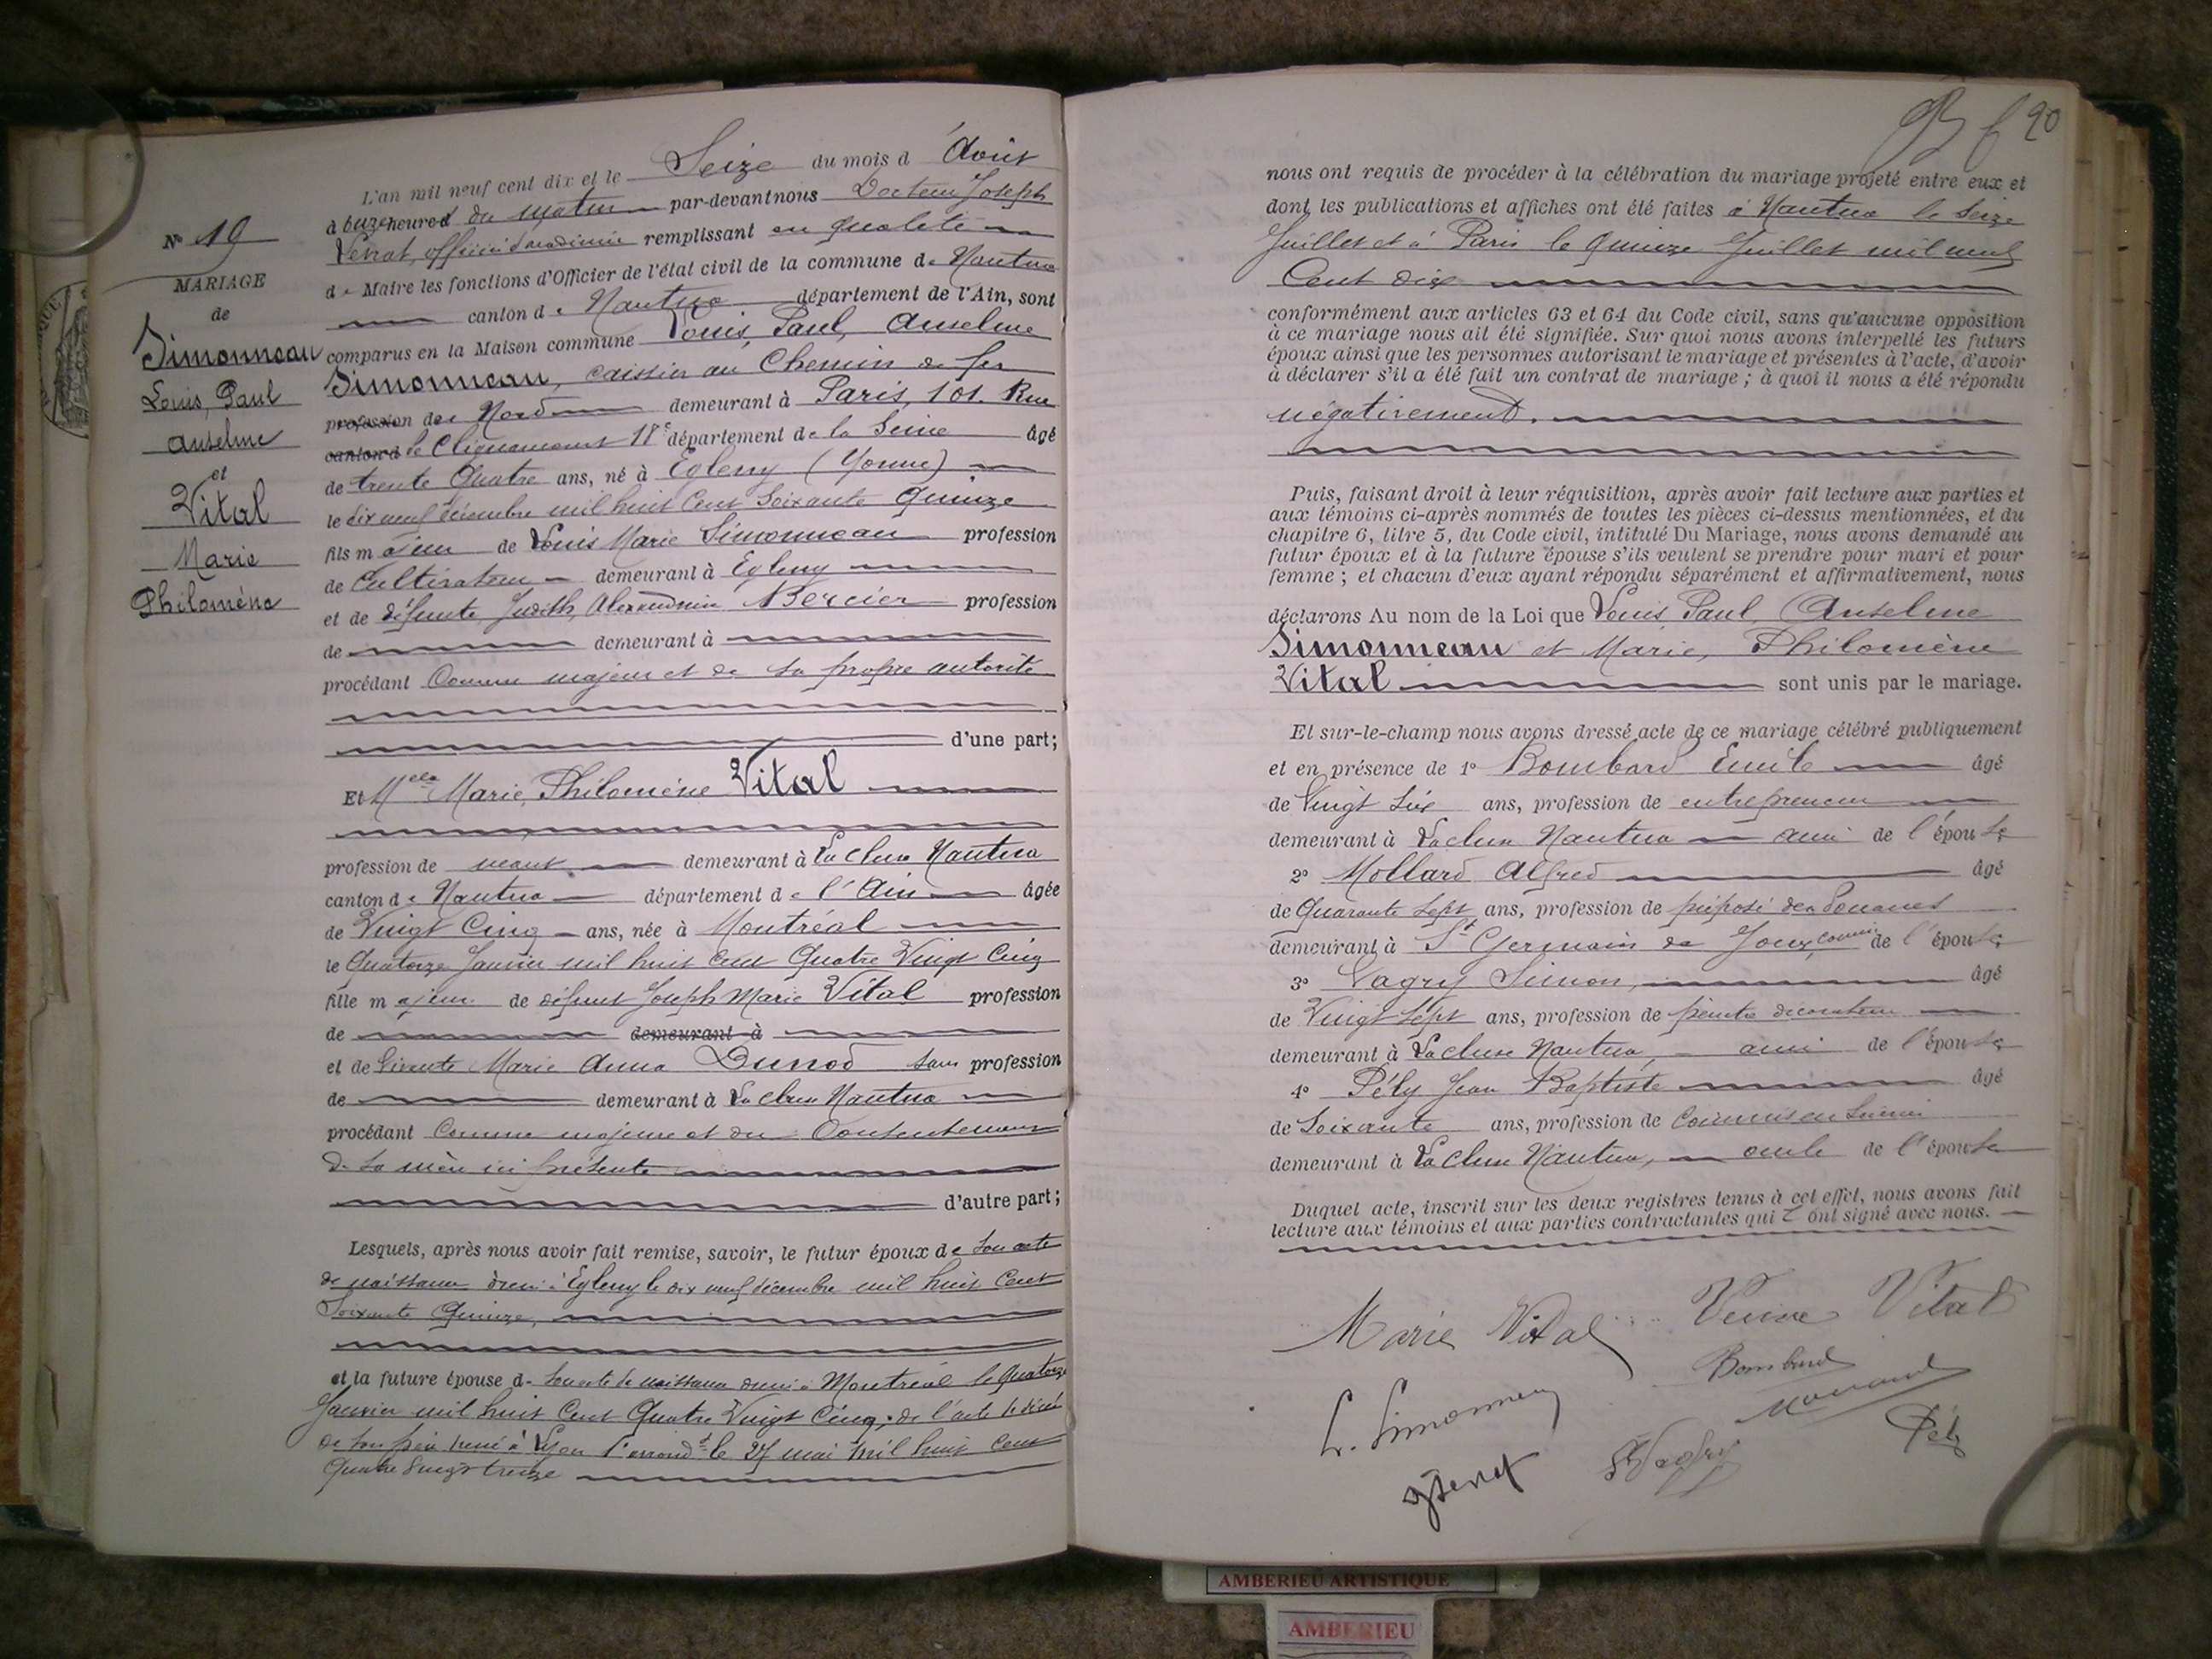 N° 19
MARIAGE
de
Simonneau
Louis, Paul
Anselme
et
Vital
Marie
Philomène
L'an mil neuf cent dix et le Seize du mois d'Août
à onze heures du matin par-devant nous Docteur Joseph
officier d'académie remplissant en qualité
de Maire les fonctions d'Officier de l'état civil de la commune de Nantua
canton de Nantua département de l'Ain, sont
comparus en la Maison commune Louis, Paul, Anselme
Simonneau, caissier au Chemin de fer
profession du Nord demeurant à Paris, 101. Rue
canton d de Clignancourt 18e département de la Seine âgé
de trente Quatre ans, né à Egleny (Yonne)
le dix neuf décembre mil huit cent soixante Quinze
fils majeur de Louis Marie Simonneau profession
de Cultivateur demeurant à Egleny
et de défunte Judith, Alexandrine Mercier profession
de demeurant à
procédant Comme majeur et de sa propre autorité
d'une part;
Et Melle Marie, Philomène Vital
profession de néant demeurant à La Cluse Nantua
canton de Nantua département de l'Ain âgée
de Vingt Cinq ans, née à Montréal
le Quatorze Janvier mil huit cent Quatre Vingt Cinq
fille majeure de défunt Joseph Marie Vital profession
de demeurant à
et de vivante Marie Anna Dunod sans profession
de demeurant à La Cluse Nantua
procédant Comme majeure et du Consentement
de sa mère ici présente
d'autre part;
Lesquels, après nous avoir fait remise, savoir, le futur époux de son acte
de naissance dressé à Egleny le dix neuf décembre mil huit cent
Soixante Quinze,
et la future épouse de son acte de naissance dressé à Montréal le Quatorze
Janvier mil huit Cent Quatre Vingt Cinq; de l'acte de décès
de son père dressé à Lyon 1er arrondt le 27 mai mil huit cent
Quatre vingt treize
20
nous ont requis de procéder à la célébration du mariage projeté entre eux et
dont les publications et affiches ont été faites à Nantua le Seize
Juillet et à Paris le Quinze Juillet mil neuf
Cent dix
conformément aux articles 63 et 64 du Code civil, sans qu'aucune opposition
à ce mariage nous ait été signifiée. Sur quoi nous avons interpellé les futurs
époux ainsi que les personnes autorisant le mariage et présentes à l'acte, d'avoir
à déclarer s'il a été fait un contrat de mariage; à quoi il nous a été répondu
négativement.
Puis, faisant droit à leur réquisition, après avoir fait lecture aux parties et
aux témoins ci-après nommés de toutes les pièces ci-dessus mentionnées, et du
chapitre 6, titre 5, du Code civil, intitulé Du Mariage, nous avons demandé au
futur époux et à la future épouse s'ils veulent se prendre pour mari et pour
femme; et chacun d'eux ayant répondu séparément et affirmativement, nous
déclarons Au nom de la Loi que Louis Paul, Anselme
Simonneau et Marie, Philomène
Vital sont unis par le mariage.
Et sur-le-champ nous avons dressé acte de ce mariage célébré publiquement
et en présence de 1° Bombard Emile âgé
de Vingt Six ans, profession de entrepreneur
demeurant à La Cluse Nantua ami de l'épouse
2° Mollard Alfred âgé
de Quarante Sept ans, profession de préposé des Douanes
demeurant à St Germain de Joux, cousin de l'épouse
3° Vagry Simon, âgé
de Vingt Sept ans, profession de peintre décorateur
demeurant à La Cluse Nantua, ami de l'épouse
4° Pély Jean Baptiste âgé
de Soixante ans, profession de
demeurant à La Cluse Nantua, oncle de l'épouse
Duquel acte, inscrit sur les deux registres tenus à cet effet, nous avons fait
lecture aux témoins et aux parties contractantes qui ont signé avec nous.
Marie Vital Veuve Vital
Bombard
L. Simonneau
Pély
AMBERIEU ARTISTIQUE
AMBERIEU